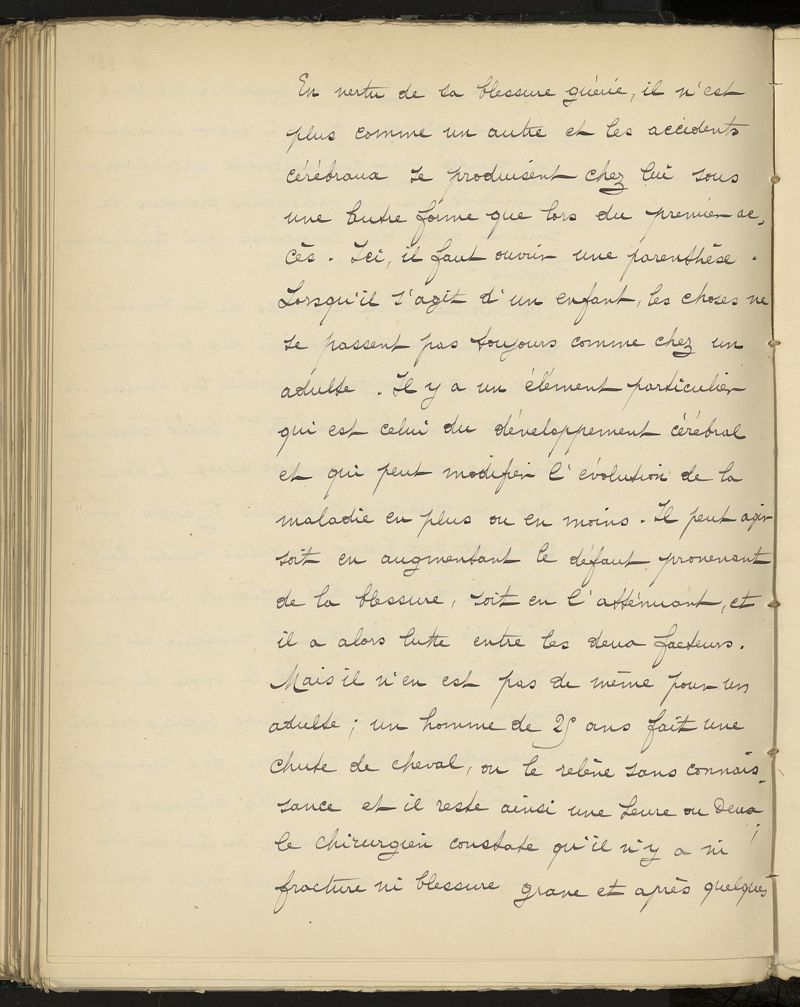 En vertu de la blessure guérie, il n'est
plus comme un autre et les accidents
cérébraux se produisent chez lui sous
une autre forme que lors du premier ac-
cès. Ici, il faut ouvrir une parenthèse.
Lorsqu'il s'agit d'un enfant, les choses ne
se passent pas toujours comme chez un
adulte. Il y a un élément particulier
qui est celui du développement cérébral
et qui peut modifier l'évolution de la
maladie en plus ou en moins. Il peut agir
soit en augmentant le défaut provenant
de la blessure, soit en l'atténuant, et
il a alors lutte entre les deux facteurs.
Mais il n'en est pas de même pour un
adulte; un homme de 25 ans fait une
chute de cheval, on le relève sans connais-
sance et il reste ainsi une heure ou deux;
le chirurgien constate qu'il n'y a ni
fracture ni blessure grave et après quelques